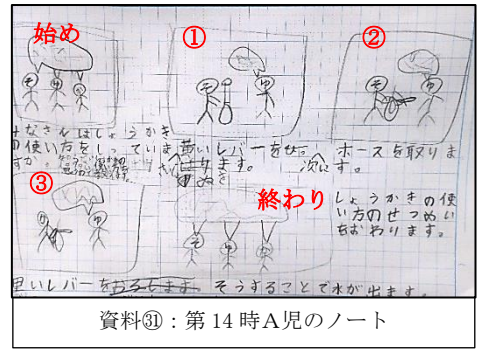 始め
①
②
みなさんはしょうかき
の使い方をしっていま
すか。
黄いレバーを
ります。
次に
ホースを取りま
す。
③
終わり
しょうかきの使
い方のせつめい
をおわります。
黒いレバーをおろします。そうすることで水が出ます。
資料㉛：第 14 時A児のノート